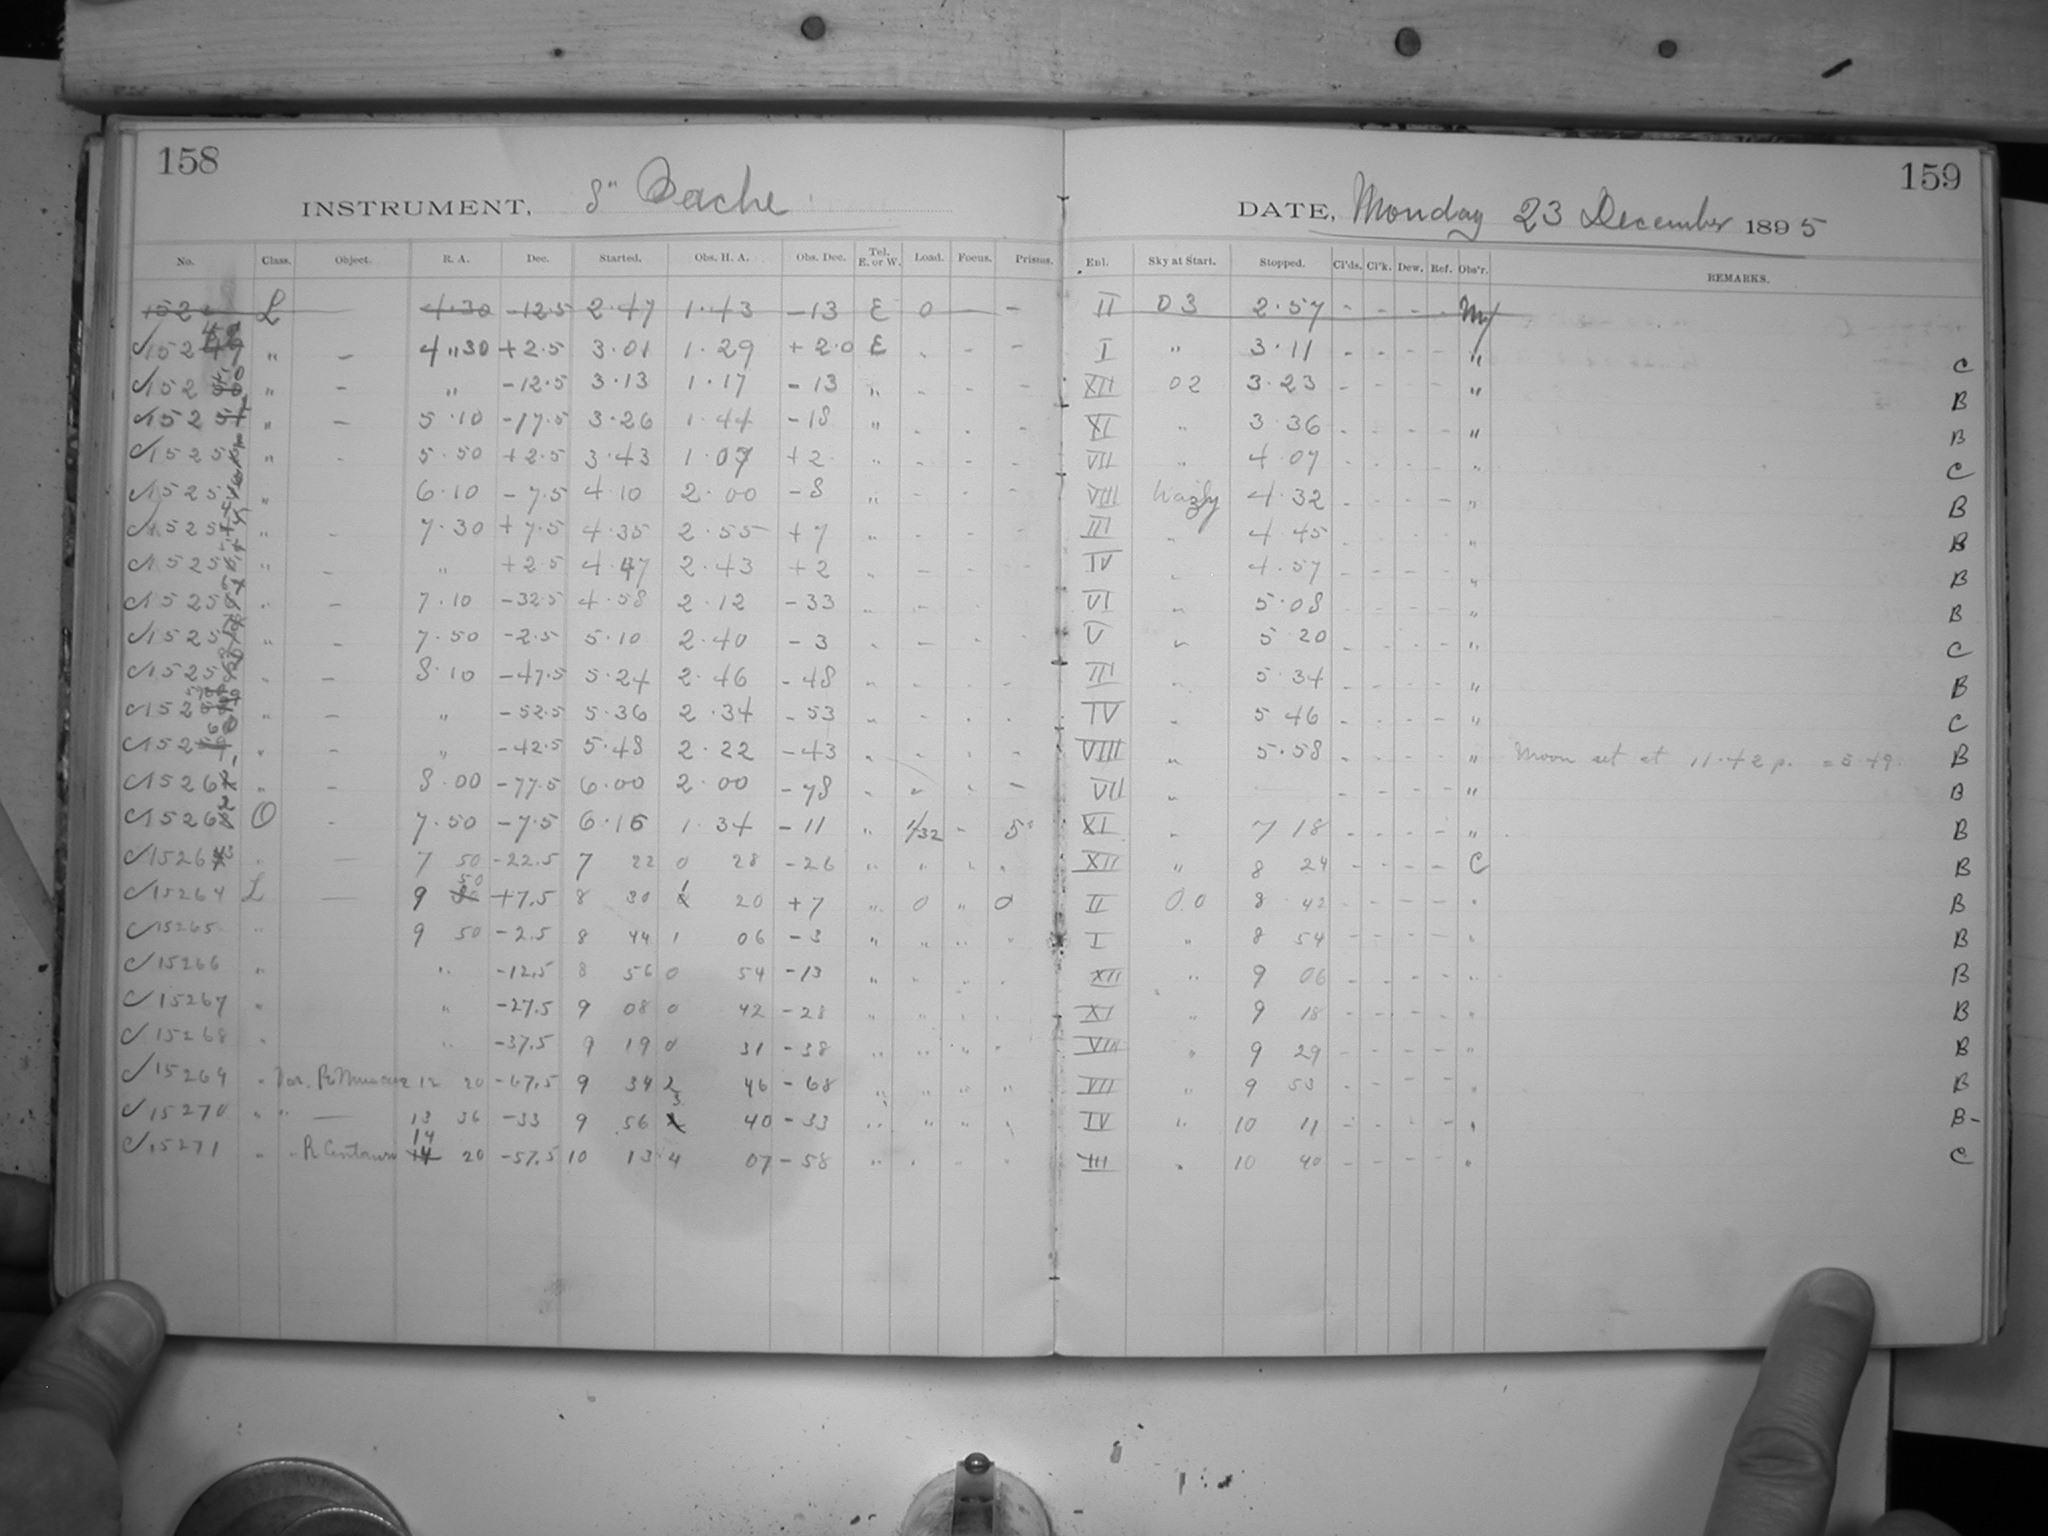 158
INSTRUMENT, 8" Bache
No. Class. Object. R. A. Dec. Started. Obs. H. A. Obs. Dec. Tel. E. or W. Load. Focus. Prisms.
L — 4.30 -12.5 2.47 1.43 -13 E 0 — -
" - 4 " 30 +2.5 3.01 1.29 +2.0 E . - -
" - " -12.5 3.13 1.17 -13 " . - -
" - 5.10 -17.5 3.26 1.44 -18 " - - -
" - 5.50 +2.5 3.43 1.07 +2 " - - -
" 6.10 -7.5 4.10 2.00 -8 " - - -
" - 7.30 +7.5 4.35 2.55 +7 " - - -
" - " +2.5 4.47 2.43 +2 " - - -
" - 7.10 -32.5 4.58 2.12 -33 " - - -
" - 7.50 -2.5 5.10 2.40 -3 " - - -
" - 8.10 -47.5 5.24 2.46 -48 " - - -
" - " -52.5 5.36 2.34 -53 " - - -
" - " -42.5 5.48 2.22 -43 " - - -
" - 8.00 -77.5 6.00 2.00 -78 " " - -
O - 7.50 -7.5 6.16 1.34 -11 " 1/32 - 5°
" — 7 50 -22.5 7 22 0 28 -26 " " " "
15264 L — 9 50 +7.5 8 30 1 20 +7 " 0 " 0
15265 " 9 50 -2.5 8 44 1 06 -3 " " " "
15266 " " -12.5 8 56 0 54 -13 " " " "
15267 " " -27.5 9 08 0 42 -28 " " " "
15268 " " -37.5 9 19 0 31 -38 " " " "
15269 " Var. R Muscae 12 20 -67.5 9 34 2 46 -68 " " " "
15270 " " — 13 36 -33 9 56 3 40 -33 " " " "
15271 " " R Centauri 14 20 -57.5 10 13 4 07 -58 " " " "
159
DATE, Monday 23 December 1895
Enl. Sky at Start. Stopped. Cl'ds. Cl'k. Dew. Ref. Obs'r. REMARKS.
II 03 2.57 - - - -
I " 3.11 - - - - " C
XII 02 3.23 - - - - " B
XI " 3.36 - - - - " B
VII " 4.07 - - - - " C
VIII hazy 4.32 - - - - " B
III " 4.45 - - - - " B
IV " 4.57 - - - - " B
VI " 5.08 - - - - " B
V " 5.20 - - - - " C
III " 5.34 - - - - " B
IV " 5.46 - - - - " C
VIII " 5.58 - - - - " Moon set at 11.42 p. = 5.49. B
VII " - - - - " B
XI " 7 18 - - - - " B
XII " 8 24 - - - - C B
II 0.0 8 42 - - - - " B
I " 8 54 - - - - " B
XII " 9 06 - - - - " B
XI " 9 18 - - - - " B
VIII " 9 29 - - - - " B
VII " 9 53 - - - - " B
IV " 10 11 - - - - " B-
III " 10 40 - - - - " C